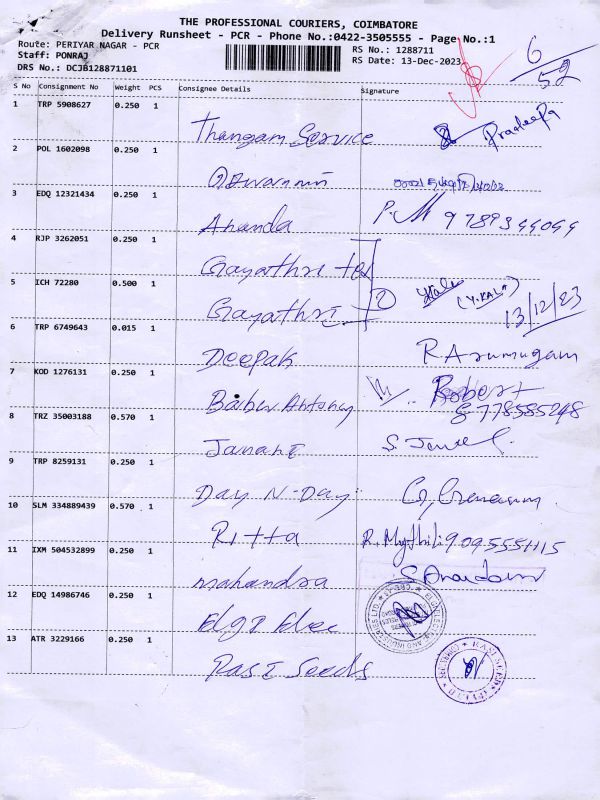 THE PROFESSIONAL COURIERS, COIMBATORE
Delivery Runsheet - PCR - Phone No.:0422-3505555 - Page No.:1
Route: PERIYAR NAGAR - PCR
RS No.: 1288711
Staff: PONRAJ
RS Date: 13-Dec-2023
DRS No.: DCJB128871101
6
52
S No Consignment No Weight PCS Consignee Details Signature
1 TRP 5908627 0.250 1
Thangam Service Pradeepa
2 POL 1602098 0.250 1
3 EDQ 12321434 0.250 1
Ananda P.M 9789344044
4 RJP 3262051 0.250 1
Gayathri tex
5 ICH 72280 0.500 1
Gayathri 2 Kala (Y.KALA)
13/12/23
6 TRP 6749643 0.015 1
Deepak R Arumugam
7 KOD 1276131 0.250 1
Antony Robert
8778585248
8 TRZ 35003188 0.570 1
Janani
9 TRP 8259131 0.250 1
Day N-Day
10 SLM 334889439 0.570 1
Ritta R. Mythili 9095551115
11 IXM 504532899 0.250 1
mahandra
12 EDQ 14986746 0.250 1
Elgi Elec
13 ATR 3229166 0.250 1
Rasi Seeds